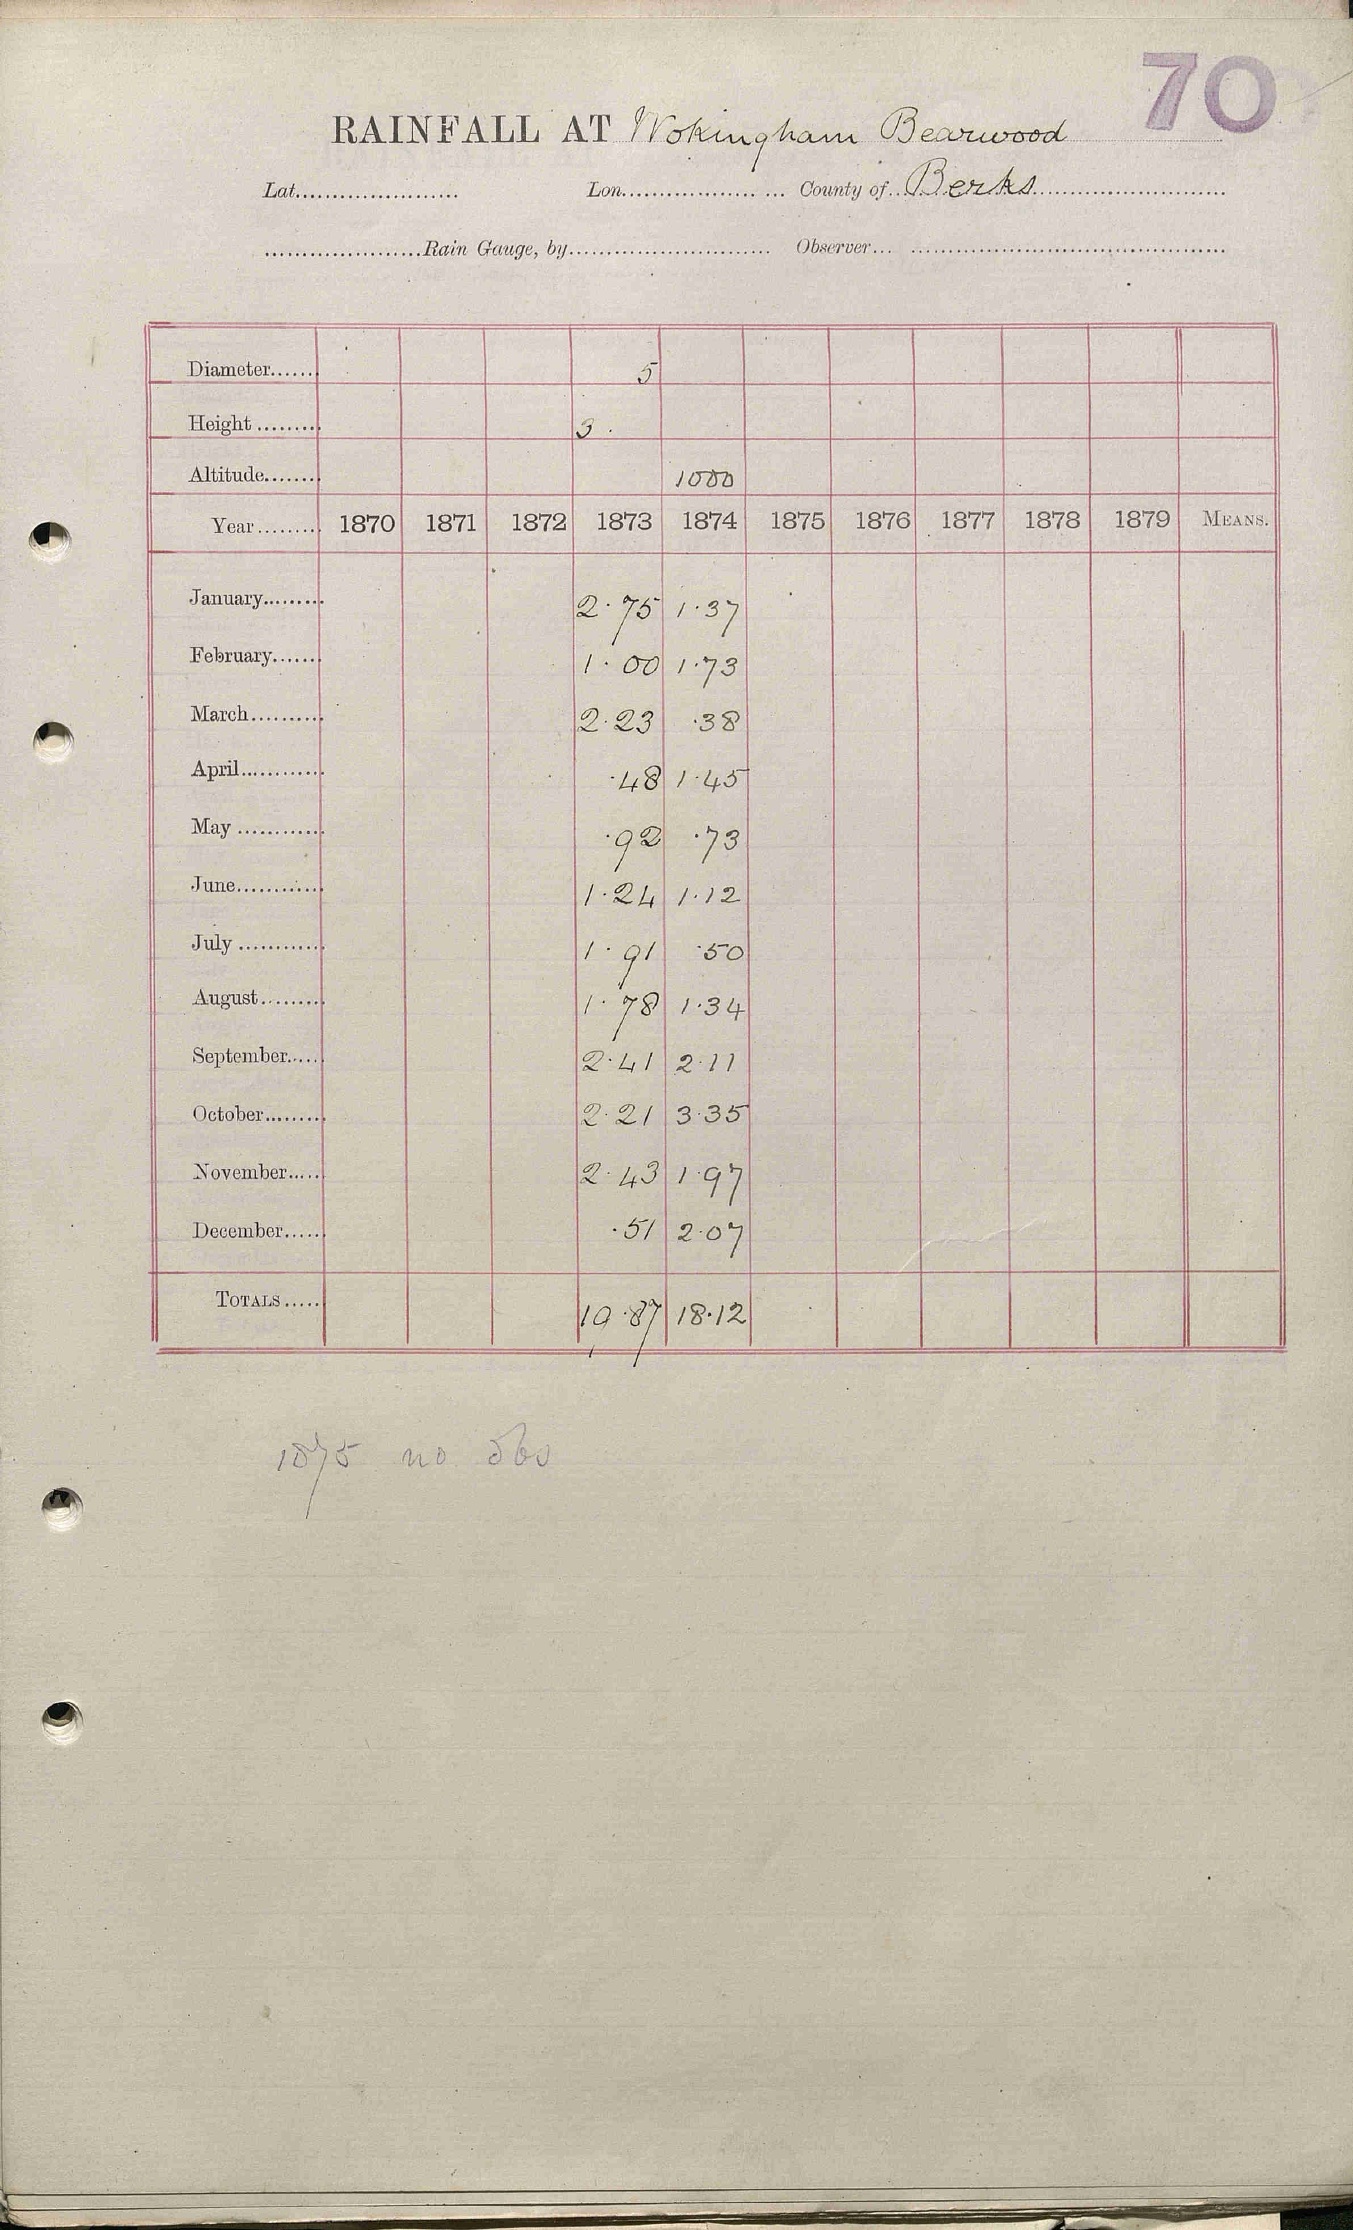 70
RAINFALL AT Wokingham Bearwood
Lat. Lon. County of Berks
Rain Gauge, by Observer
Diameter 5
Height 3.
Altitude 1000
Year 1870 1871 1872 1873 1874 1875 1876 1877 1878 1879 MEANS.
January 2.75 1.37
February 1.00 1.73
March 2.23 .38
April .48 1.45
May .92 .73
June 1.24 1.12
July 1.91 .50
August 1.78 1.34
September 2.41 2.11
October 2.21 3.35
November 2.43 1.97
December .51 2.07
TOTALS 19.87 18.12
1875 no obs